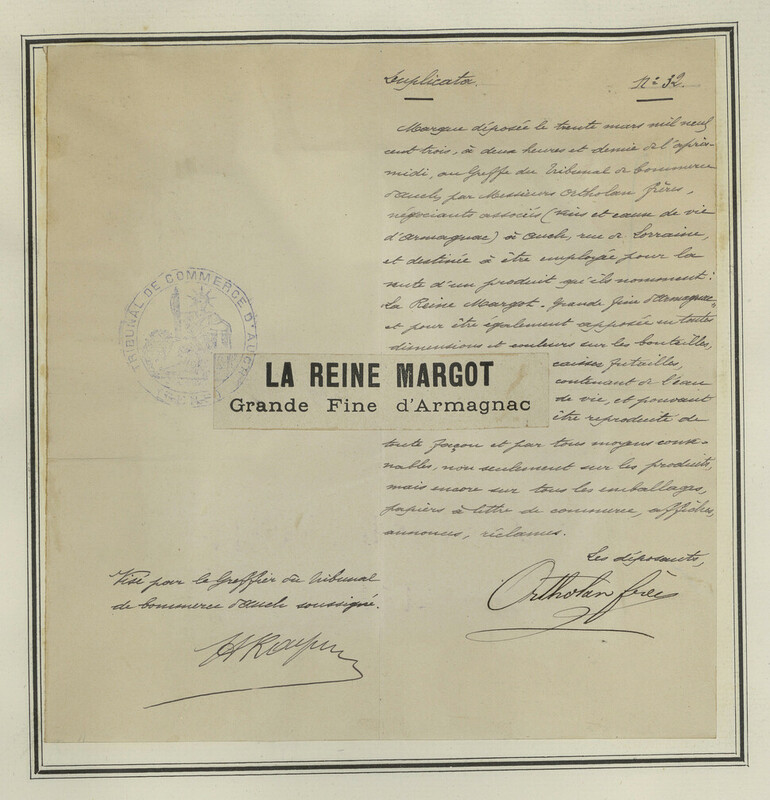 Duplicata.
N° 32.
Marque déposée le trente mars mil neuf
cent trois, à deux heures et demie de l'après-
midi, au Greffe du Tribunal de Commerce
d'Auch, par Messieurs Ortholan frères,
négociants associés (Vins et eaux de vie
d'Armagnac) à Auch, rue de Lorraine,
et destinée à être employée pour la
vente d'un produit qu'ils nomment:
La Reine Margot - Grande fine d'Armagnac
et pour être également apposée en toutes
dimensions et couleurs sur les bouteilles,
caisses, futailles,
contenant de l'eau
de vie, et pouvant
être reproduite de
toute façon et par tous moyens conve-
nables, non seulement sur les produits,
mais encore sur tous les emballages,
papiers à lettre de commerce, affiches,
annonces, réclames.
Les déposants,
Ortholan frères
TRIBUNAL DE COMMERCE D'AUCH
LA REINE MARGOT
Grande Fine d'Armagnac
Visé par le Greffier du Tribunal
de Commerce d'Auch soussigné.